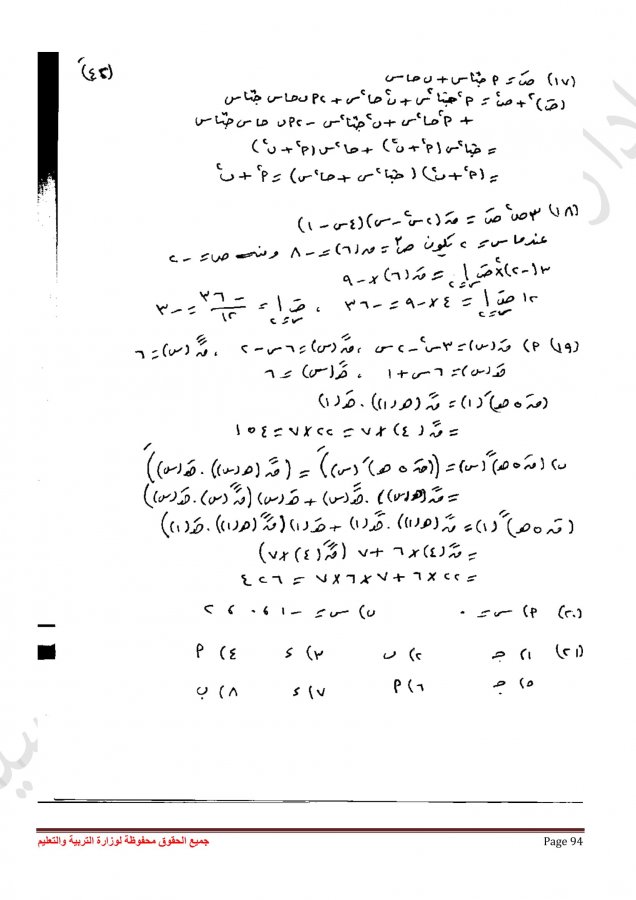 (٤٣)
(١٧) صَ = P جتاس + ن جاس
(صَ)² + ص² = P² جتا²س + ن² جا²س + ٢P ن جاس جتاس
+ P² جا²س + ن² جتا²س − ٢P ن جاس جتاس
= جتا²س (P² + ن²) + جا²س (P² + ن²)
= (P² + ن²) (جتا²س + جا²س) = P² + ن²
(١٨) ٣ص² صَ = قَ(٢س² − س)(٤س − ١)
عندما س = ٢ يكون ص³ = ق(٦) = −٨ ومنه ص = −٢
٣(−٢)² × صَ|س=٢ = قَ(٦) × −٩
١٢ صَ|س=٢ = ٤ × −٩ = −٣٦ ، صَ|س=٢ = −٣٦/١٢ = −٣
(١٩) P) قَ(س) = ٣س² − ٢س ، قً(س) = ٦س − ٢ ، قًَ(س) = ٦
هَ(س) = ٦س + ١ ، هً(س) = ٦
(قَ ٥ هـ)َ(١) = قً(هـ(١)) . هَ(١)
= قً(٤) × ٧ = ٢٢ × ٧ = ١٥٤
ن) (قَ ٥ هـ)ً(س) = ((قَ ٥ هـ)َ(س))َ = (قً(هـ(س)) . هَ(س))َ
= قً(هـ(س)) . هً(س) + هَ(س) (قًَ(س) . هَ(س))
(قَ ٥ هـ)ً(١) = قً(هـ(١)) . هً(١) + هَ(١) (قًَ(هـ(١)) . هَ(١))
= قً(٤) × ٦ + ٧ (قًَ(٤) × ٧)
= ٢٢ × ٦ + ٧ × ٦ × ٧ = ٤٢٦
(٢٠) P) س = ٠ ن) س = −١ ، ٠ ، ٢
(٢١) ١) جـ ٢) ب ٣) ء ٤) P
٥) جـ ٦) P ٧) ء ٨) ب
جميع الحقوق محفوظة لوزارة التربية والتعليم
Page 94